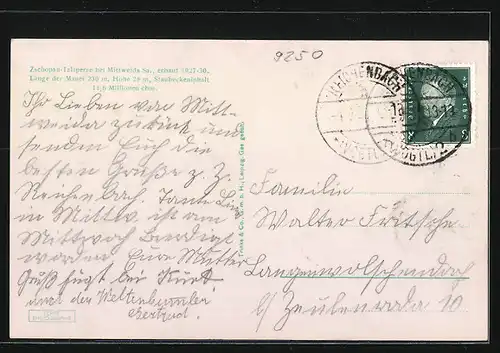 9250
Zschopau-Talsperre bei Mittweida Sa., erbaut 1927-30.
Länge der Mauer 230 m, Höhe 28 m, Staubeckeninhalt
11,6 Millionen cbm.
Ihr Lieben von Mitt-
weida zurück und
senden Euch die
besten Grüße z. Z.
Reichenbach. Tante
in Mittw. ist am
Mittwoch Beerdigt
worden Eure Mutter
Gruß fügt bei Kurt
und der Weltenbummler
Gertrud.
Trinks & Co., G. m. b. H., Leipzig. Ges. gesch.
REICHENBACH
(VOGTL) 2
8 8
Familie
Walter Fritsche
Langenwolschendorf
b/ Zeulenroda 10